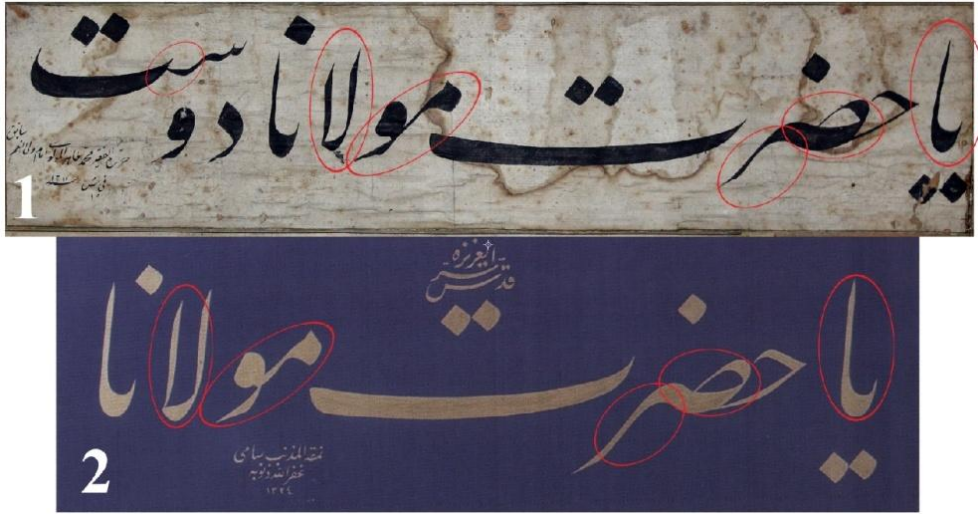 يا حضرت مولانا دوست
1
قدس سره العزيز
يا حضرت مولانا
نمقه المذنب سامى
غفر الله ذنوبه
١٣٢٤
2